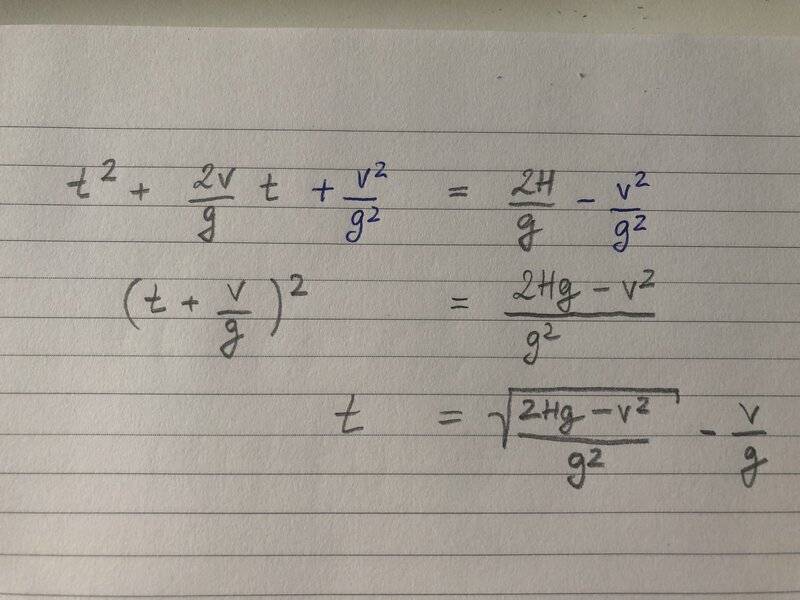 t² + 2v/g t + v²/g² = 2H/g - v²/g²
(t + v/g)² = (2Hg - v²)/g²
t = √((2Hg - v²)/g²) - v/g